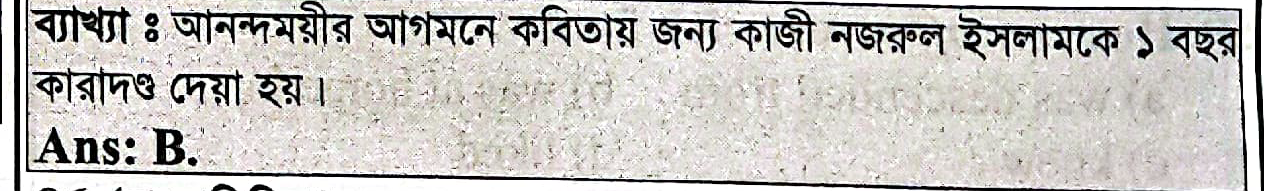 ব্যাখ্যা ঃ আনন্দময়ীর আগমনে কবিতায় জন্য কাজী নজরুল ইসলামকে ১ বছর
কারাদণ্ড দেয়া হয়।
Ans: B.